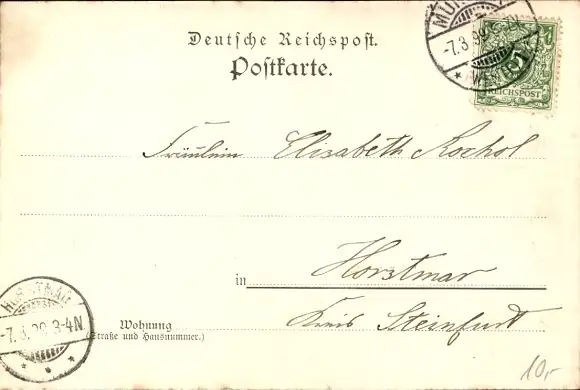 Deutsche Reichspost.
Postkarte.
-7.3.99
REICHSPOST
Fräulein Elisabeth Rochol
in Horstmar
Wohnung
(Straße und Hausnummer.)
Kreis Steinfurt
HORSTMAR
-7.3.99.3-4N
10,-